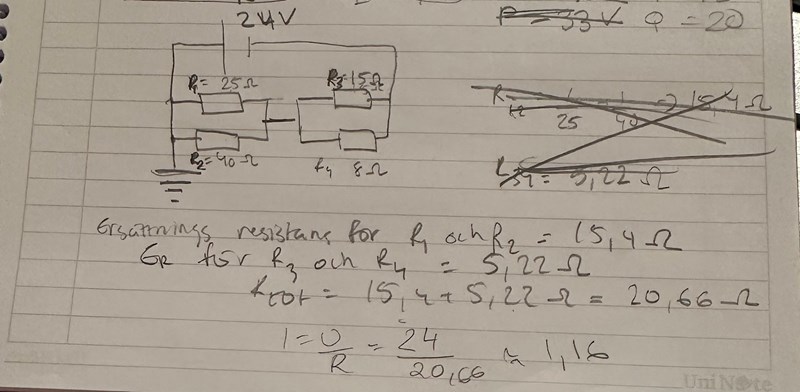 24V
R1= 25Ω
R3=15Ω
R2=40Ω
R4 8Ω
P = 33V φ = 20
R12
1 1 → 15,4 Ω
25 40
R34 = 5,22 Ω
Ersättnings resistans för R1 och R2 = 15,4 Ω
ER för R3 och R4 = 5,22 Ω
Rtot = 15,4+5,22 Ω = 20,66 Ω
I = U/R = 24/20,66 ≈ 1,16
UniNote